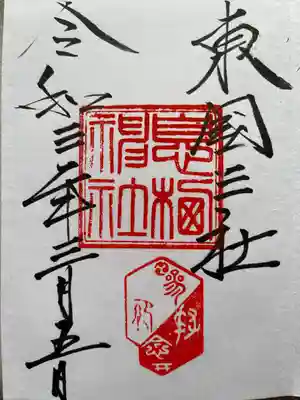 東国三社
息栖
神社
令和三年三月五日